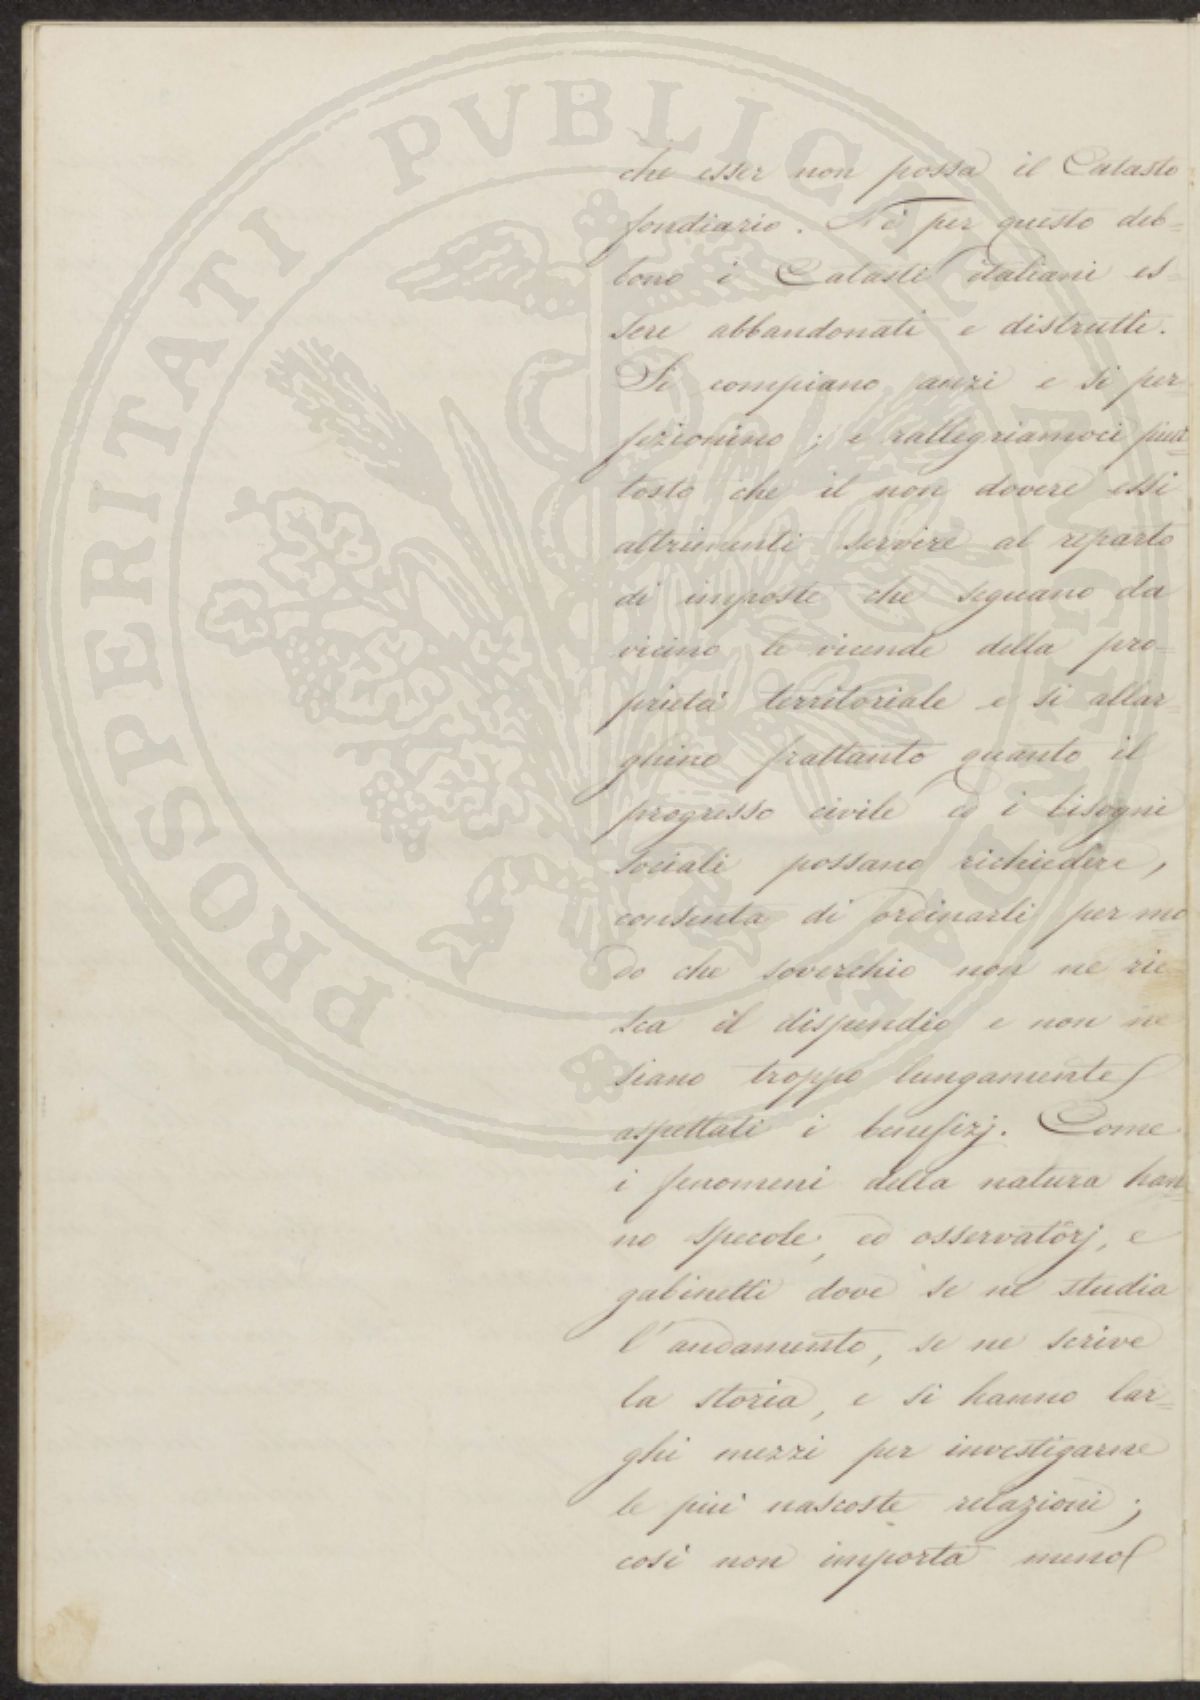 che esser non possa il Catasto
fondiario. Nè per questo deb=
bono i Catasti italiani es=
sere abbandonati e distrutti.
Si compiano anzi e si per=
fezionino; e rallegriamoci piut=
tosto che il non dovere essi
altrimenti servire al reparto
di imposte che seguano da
vicino le vicende della pro=
prietà territoriale e si allar=
ghino frattanto quanto il
progresso civile ed i bisogni
sociali possano richiedere,
consenta di ordinarli per mo
do che soverchio non ne rie
sca il dispendio e non ne
siano troppo lungamente
aspettati i benefizj. Come
i fenomeni della natura han=
no specole, ed osservatorj, e
gabinetti dove se ne studia
l'andamento, se ne scrive
la storia, e si hanno lar=
ghi mezzi per investigarne
le più nascoste relazioni;
così non importa meno
PROSPERITATI PUBLICAE AUGENDAE